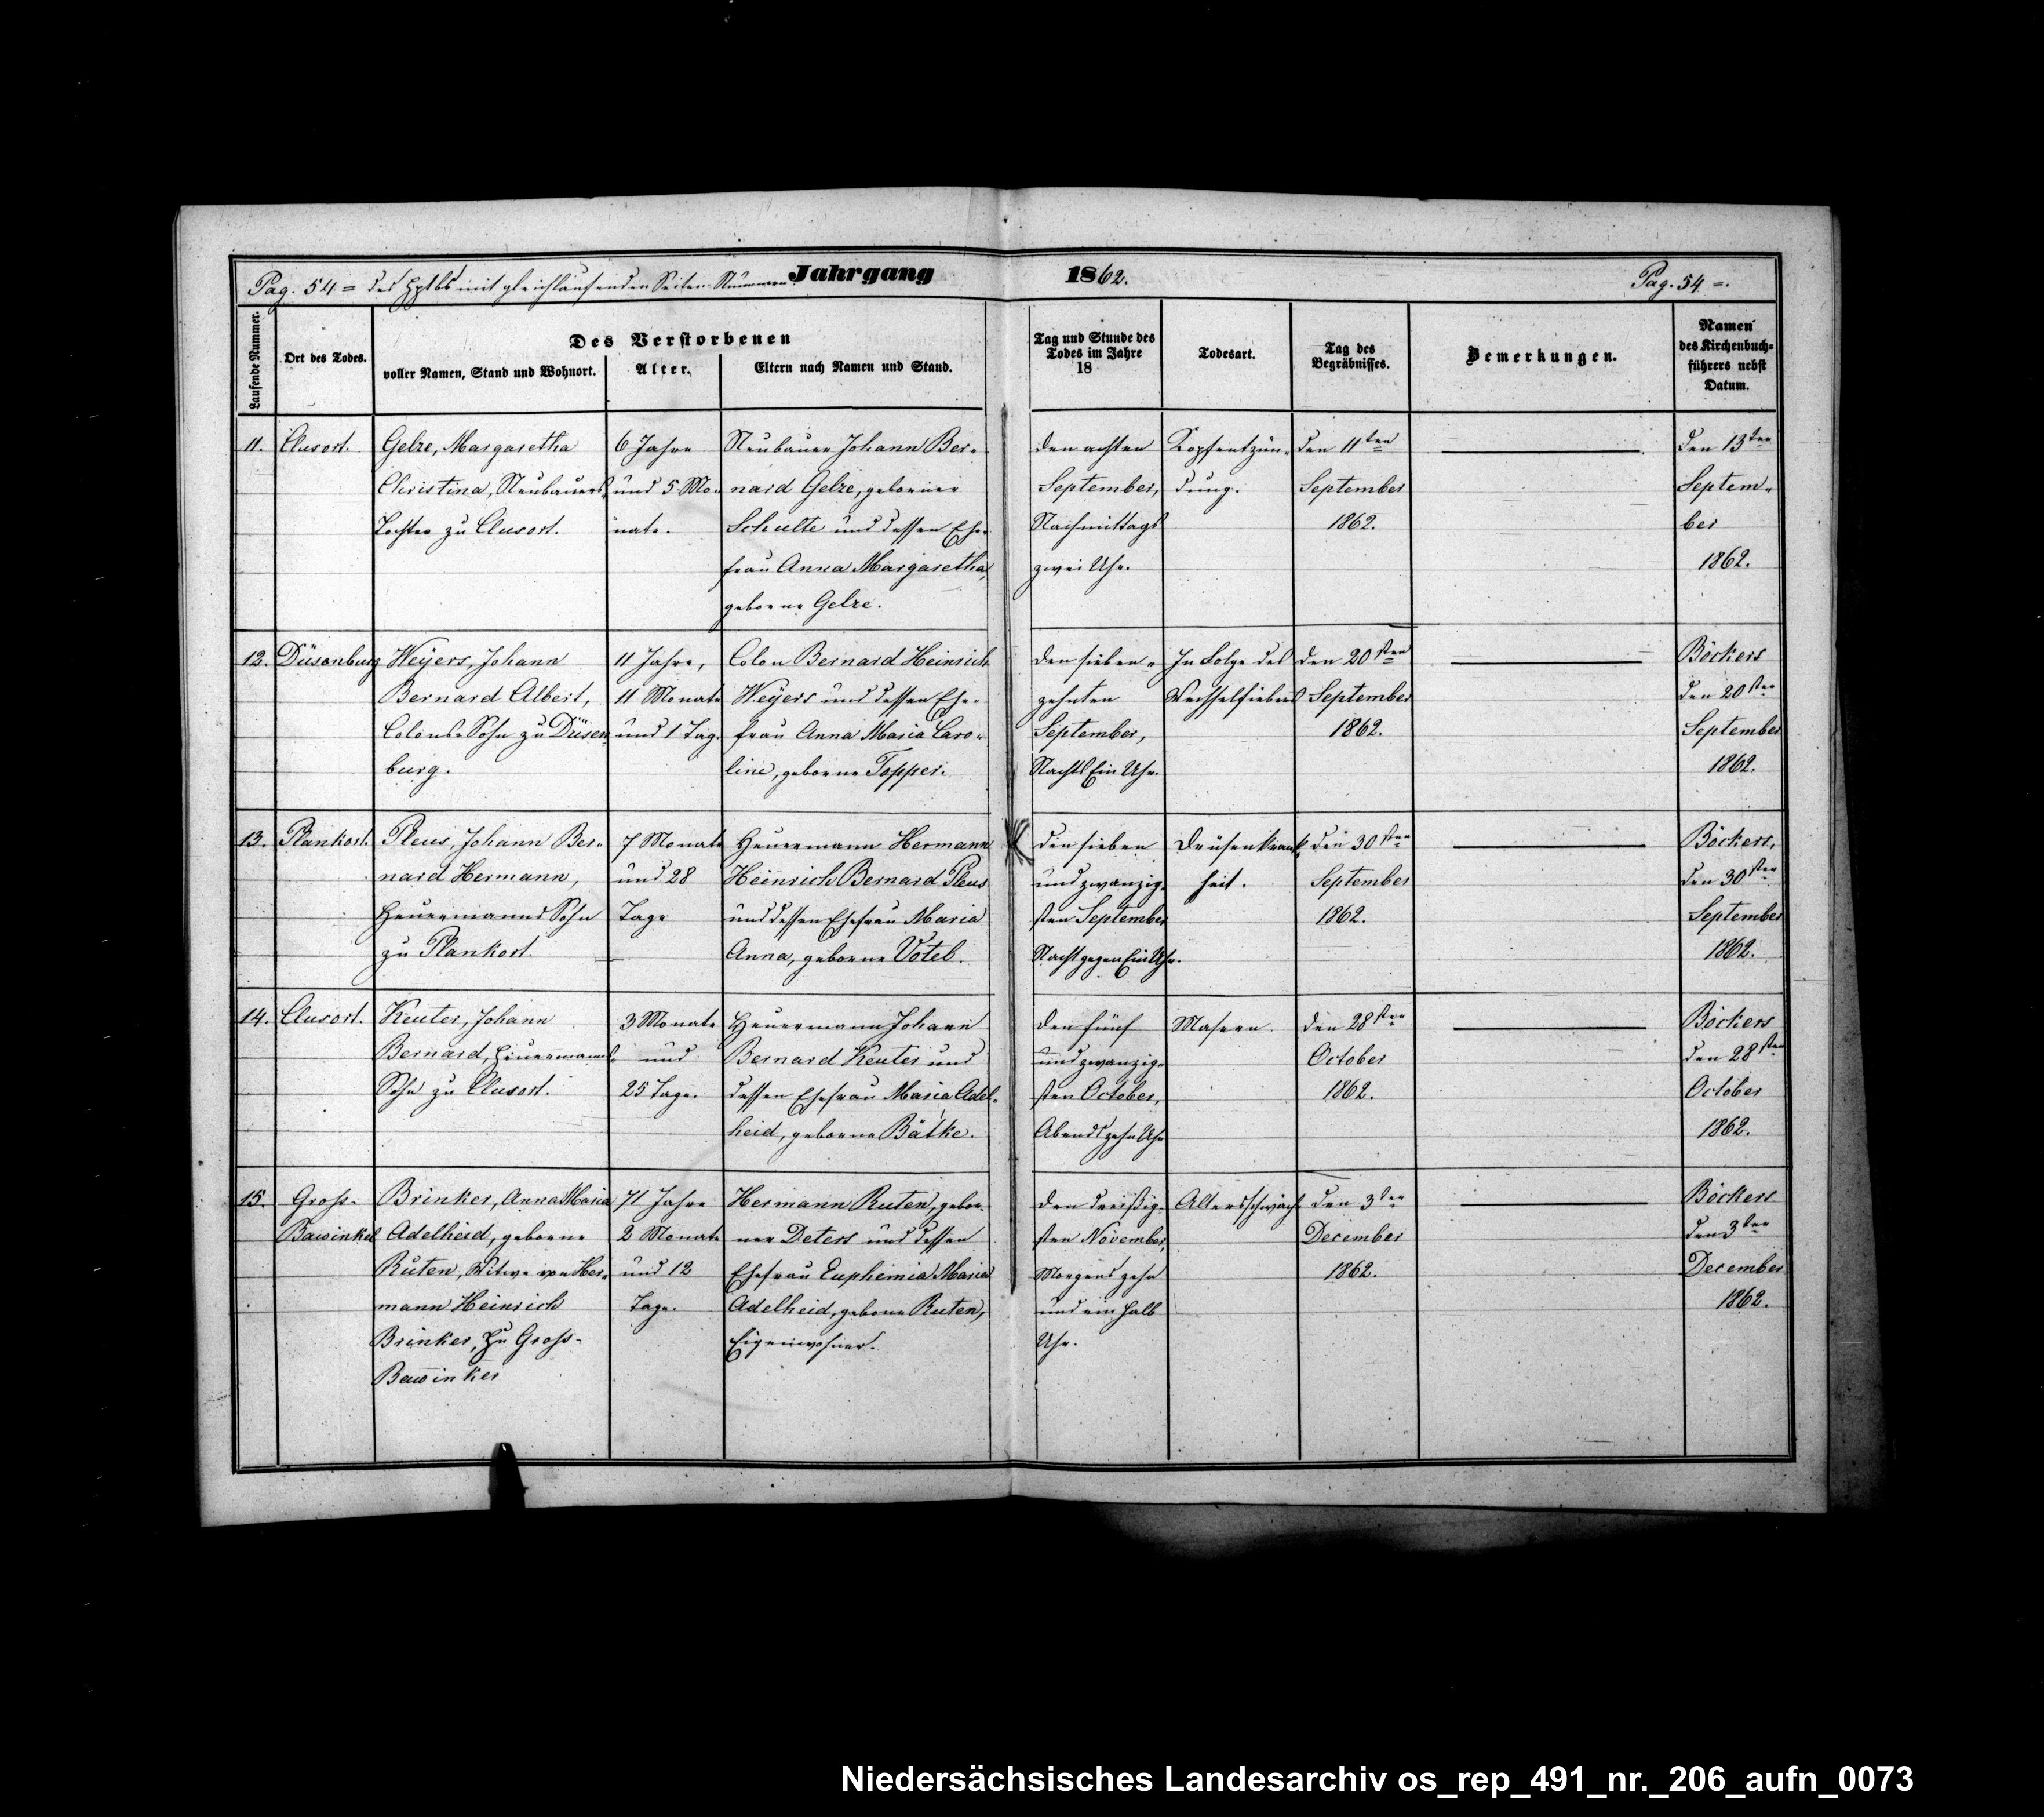 Pag. 54 = des Hptbs mit gleichlaufenden Seiten-Nummern.
Jahrgang 1862.
Pag. 54 =.
Laufende Nummer.
Ort des Todes.
Des Verstorbenen
voller Namen, Stand und Wohnort.
Alter.
Eltern nach Namen und Stand.
Tag und Stunde des
Todes im Jahre
18
Todesart.
Tag des
Begräbnisses.
Bemerkungen.
Namen
des Kirchenbuch-
führers nebst
Datum.
11.
Clusort.
Gelze, Margaretha
Christina, Neubauers
Tochter zu Clusort.
6 Jahre
und 5 Mo-
nate.
Neubauer Johann Ber-
nard Gelze, geborner
Schulte und dessen Ehe-
frau Anna Margaretha,
geborne Gelze.
den achten
September,
Nachmittags
zwei Uhr.
Kopfentzün-
dung.
den 11ten
September
1862.
den 13ten
Septem-
ber
1862.
12.
Düsenburg
Weÿers, Johann
Bernard Albert,
Colons-Sohn zu Düsen-
burg.
11 Jahre,
11 Monate
und 1 Tag.
Colon Bernard Heinrich
Weÿers und dessen Ehe-
frau Anna Maria Caro-
line, geborne Topper.
den sieben-
zehnten
September,
Nachts Ein Uhr.
In Folge des
Wechselfiebers
den 20sten
September
1862.
Böckers
den 20sten
September
1862.
13.
Plankort.
Pleus, Johann Ber-
nard Hermann,
Heuermanns Sohn
zu Plankort.
7 Monate
und 28
Tage
Heuermann Hermann
Heinrich Bernard Pleus
und dessen Ehefrau Maria
Anna, geborne Votel.
den sieben
und zwanzig-
sten September
Nacht gegen Ein Uhr.
Drüsenkrank-
heit.
den 30sten
September
1862.
Böckers,
den 30sten
September
1862.
14.
Clusort.
Keuter, Johann
Bernard, Heuermanns
Sohn zu Clusort.
3 Monate
und
25 Tage.
Heuermann Johann
Bernard Keuter und
dessen Ehefrau Maria Adel-
heid, geborne Bätke.
den fünf
und zwanzig-
sten October,
Abends zehn Uhr
Masern.
den 28sten
October
1862.
Böckers
den 28sten
October
1862.
15.
Gross-
Bawinkel
Brinker, Anna Maria
Adelheid, geborne
Ruten, Witwe von Her-
mann Heinrich
Brinker, zu Gross-
Bawinker
71 Jahre
2 Monate
und 12
Tage.
Hermann Ruten, gebor-
ner Deters und dessen
Ehefrau Euphemia Maria
Adelheid, geborne Ruten,
Eigenwohner.
den dreißig-
sten November,
Morgens zehn
und ein halb
Uhr.
Altersschwäche
den 3ten
December
1862.
Böckers
den 3ten
December
1862.
Niedersächsisches Landesarchiv os_rep_491_nr._206_aufn_0073